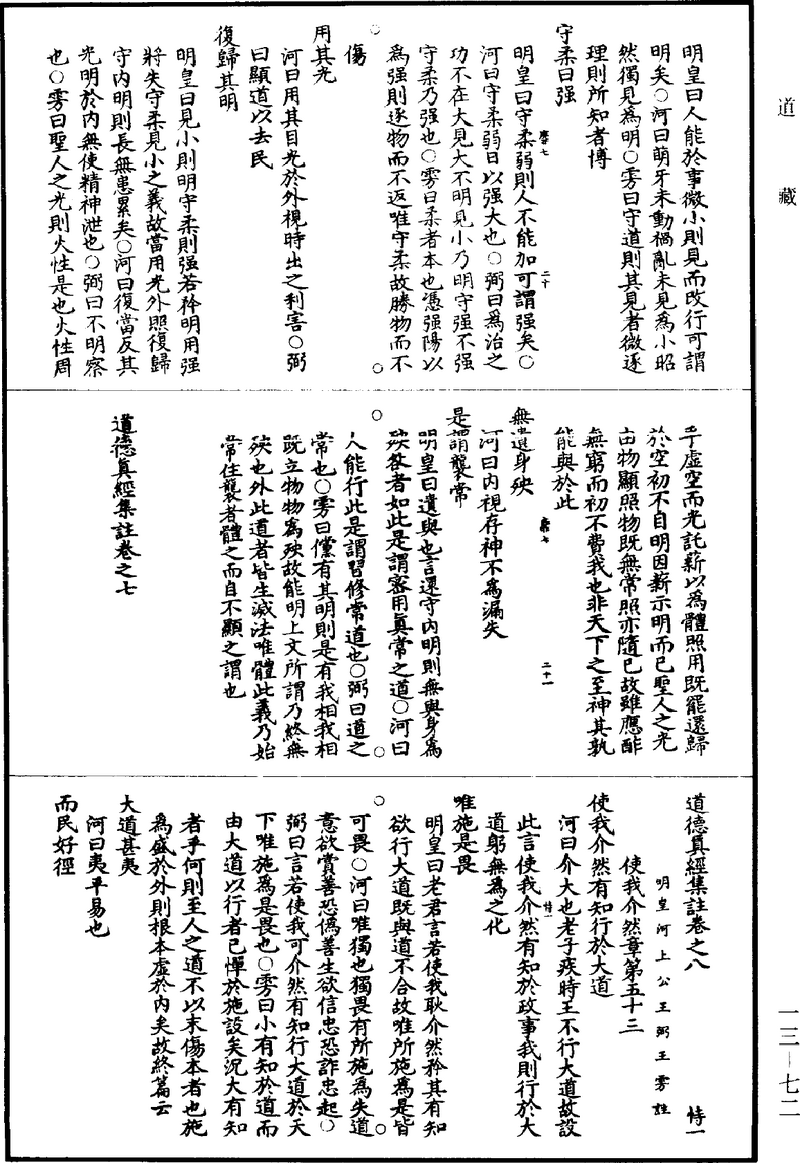 道藏
明皇曰人能於事微小則見而改行可謂
明矣○河曰萌牙未動禍亂未見為小昭
然獨見為明○雱曰守道則其見者微逐
理則所知者博
守柔曰强
明皇曰守柔弱則人不能加可謂强矣○
河曰守柔弱日以强大也○弼曰為治之
功不在大見大不明見小乃明守强不强
守柔乃强也○雱曰柔者本也憑强陽以
為强則逐物而不返唯守柔故勝物而不
傷
用其光
河曰用其目光於外視時世之利害○弼
曰顯道以去民
復歸其明
明皇曰見小則明守柔則强若矜明用强
將失守柔見小之義故當用光外照復歸
守内明則長無患累矣○河曰復當反其
光明於内無使精神泄也○弼曰不明察
也○雱曰聖人之光則火性是也火性周
乎虛空而光託薪以為體照用既罷還歸
於空初不自明因薪示明而已聖人之光
由物顯照物既無常照亦隨已故雖應酢
無窮而初不費我也非天下之至神其孰
能與於此
無遺身殃
河曰内視存神不為漏失
是謂襲常
明皇曰遺與也言還守内明則無與身為
殃咎者如此是謂密用真常之道○河曰
人能行此是謂習修常道也○弼曰道之
常也○雱曰儻有其明則是有我相我相
既立物物為殃故能明上文所謂乃終無
殃也外此道者皆生滅法唯體此義乃始
常住襲者體之而自不顯之謂也
道德真經集註卷之七
道德真經集註卷之八 恃一
明皇河上公王弼王雱註
使我介然章第五十三
使我介然有知行於大道
河曰介大也老子疾時王不行大道故設
此言使我介然有知於政事我則行於大
道躬無為之化
唯施是畏
明皇曰老君言若使我耿介然矜其有知
欲行大道既與道不合故唯所施為是皆
可畏○河曰唯獨也獨畏有所施為失道
意欲賞善恐偽善生欲信忠恐詐忠起○
弼曰言若使我可介然有知行大道於天
下唯施為是畏也○雱曰小有知於道而
由大道以行者已憚於施設矣況大有知
者乎何則至人之道不以末傷本者也施
為盛於外則根本虛於内矣故終篇云
大道甚夷
河曰夷平易也
而民好徑
一三—七二